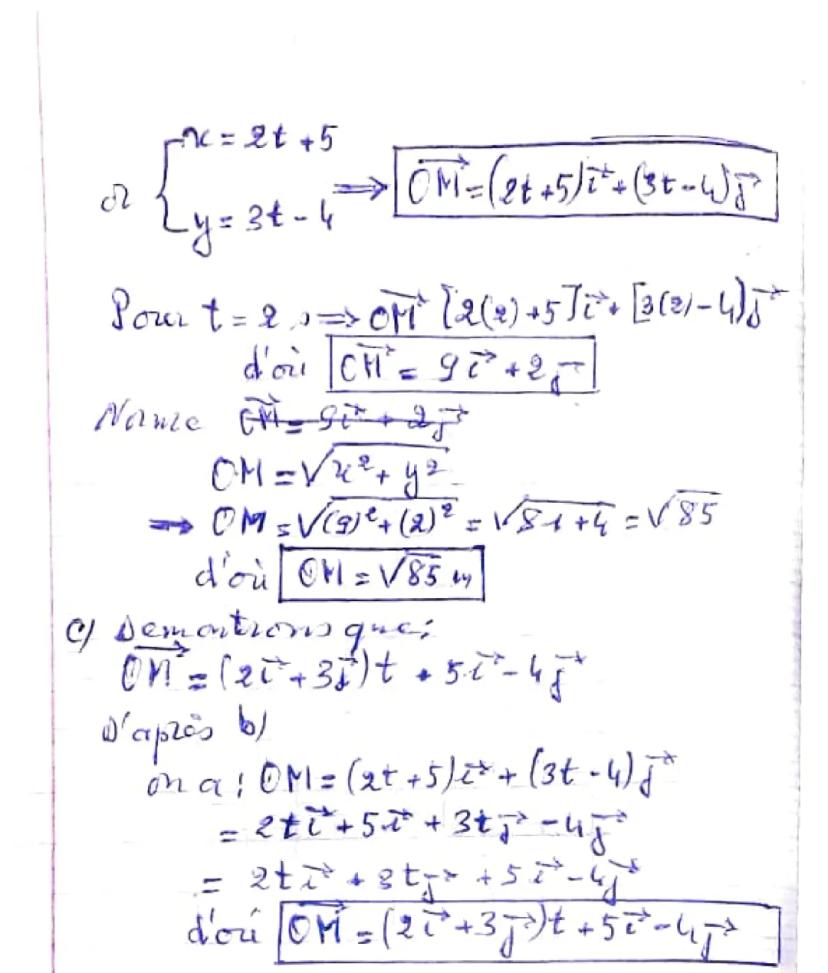 or { x = 2t + 5
y = 3t - 4 ⟹ OM⃗ = (2t + 5)i⃗ + (3t - 4)j⃗
Pour t = 2, ⟹ OM⃗ [2(2) + 5]i⃗ + [3(2) - 4)j⃗
d'où OM⃗ = 9i⃗ + 2j⃗
Norme OM⃗ = 9i⃗ + 2j⃗
OM = √x² + y²
⟹ OM = √(9)² + (2)² = √81 + 4 = √85
d'où OM = √85 m
c) Demontrons que:
OM⃗ = (2i⃗ + 3j⃗)t + 5i⃗ - 4j⃗
D'après b)
on a: OM = (2t + 5)i⃗ + (3t - 4)j⃗
= 2ti⃗ + 5i⃗ + 3tj⃗ - 4j⃗
= 2ti⃗ + 3tj⃗ + 5i⃗ - 4j⃗
d'où OM⃗ = (2i⃗ + 3j⃗)t + 5i⃗ - 4j⃗